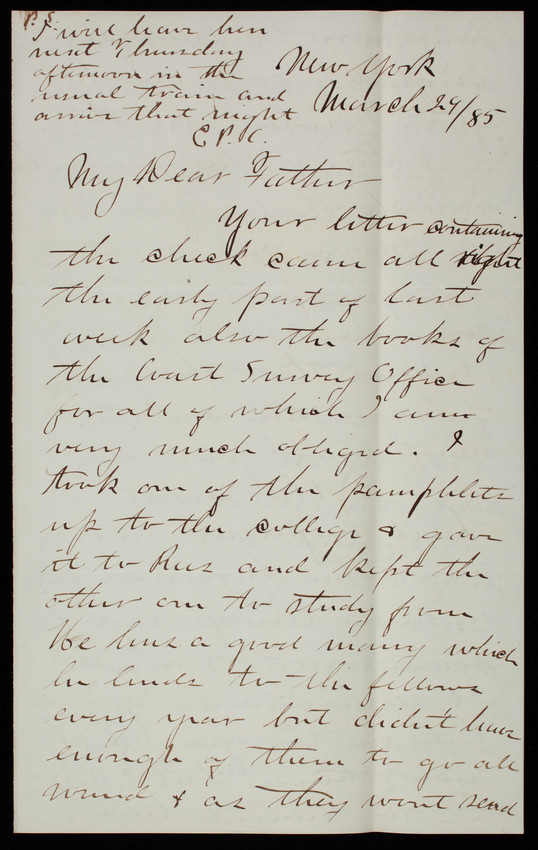 P.S.
I will leave here
next Thursday
afternoon in the
usual train and
arrive that night
E P. C.
New York
March 24/85
My Dear Father
Your letter containing
the check came all right
the early part of last
week also the books of
the Coast Survey Office
for all of which I am
very much obliged. I
took one of the pamphlets
up to the college & gave
it to Rees and kept the
other one to study from
He has a good many which
he lends to the fellows
every year but didn't have
enough of them to go all
round & as they wont send